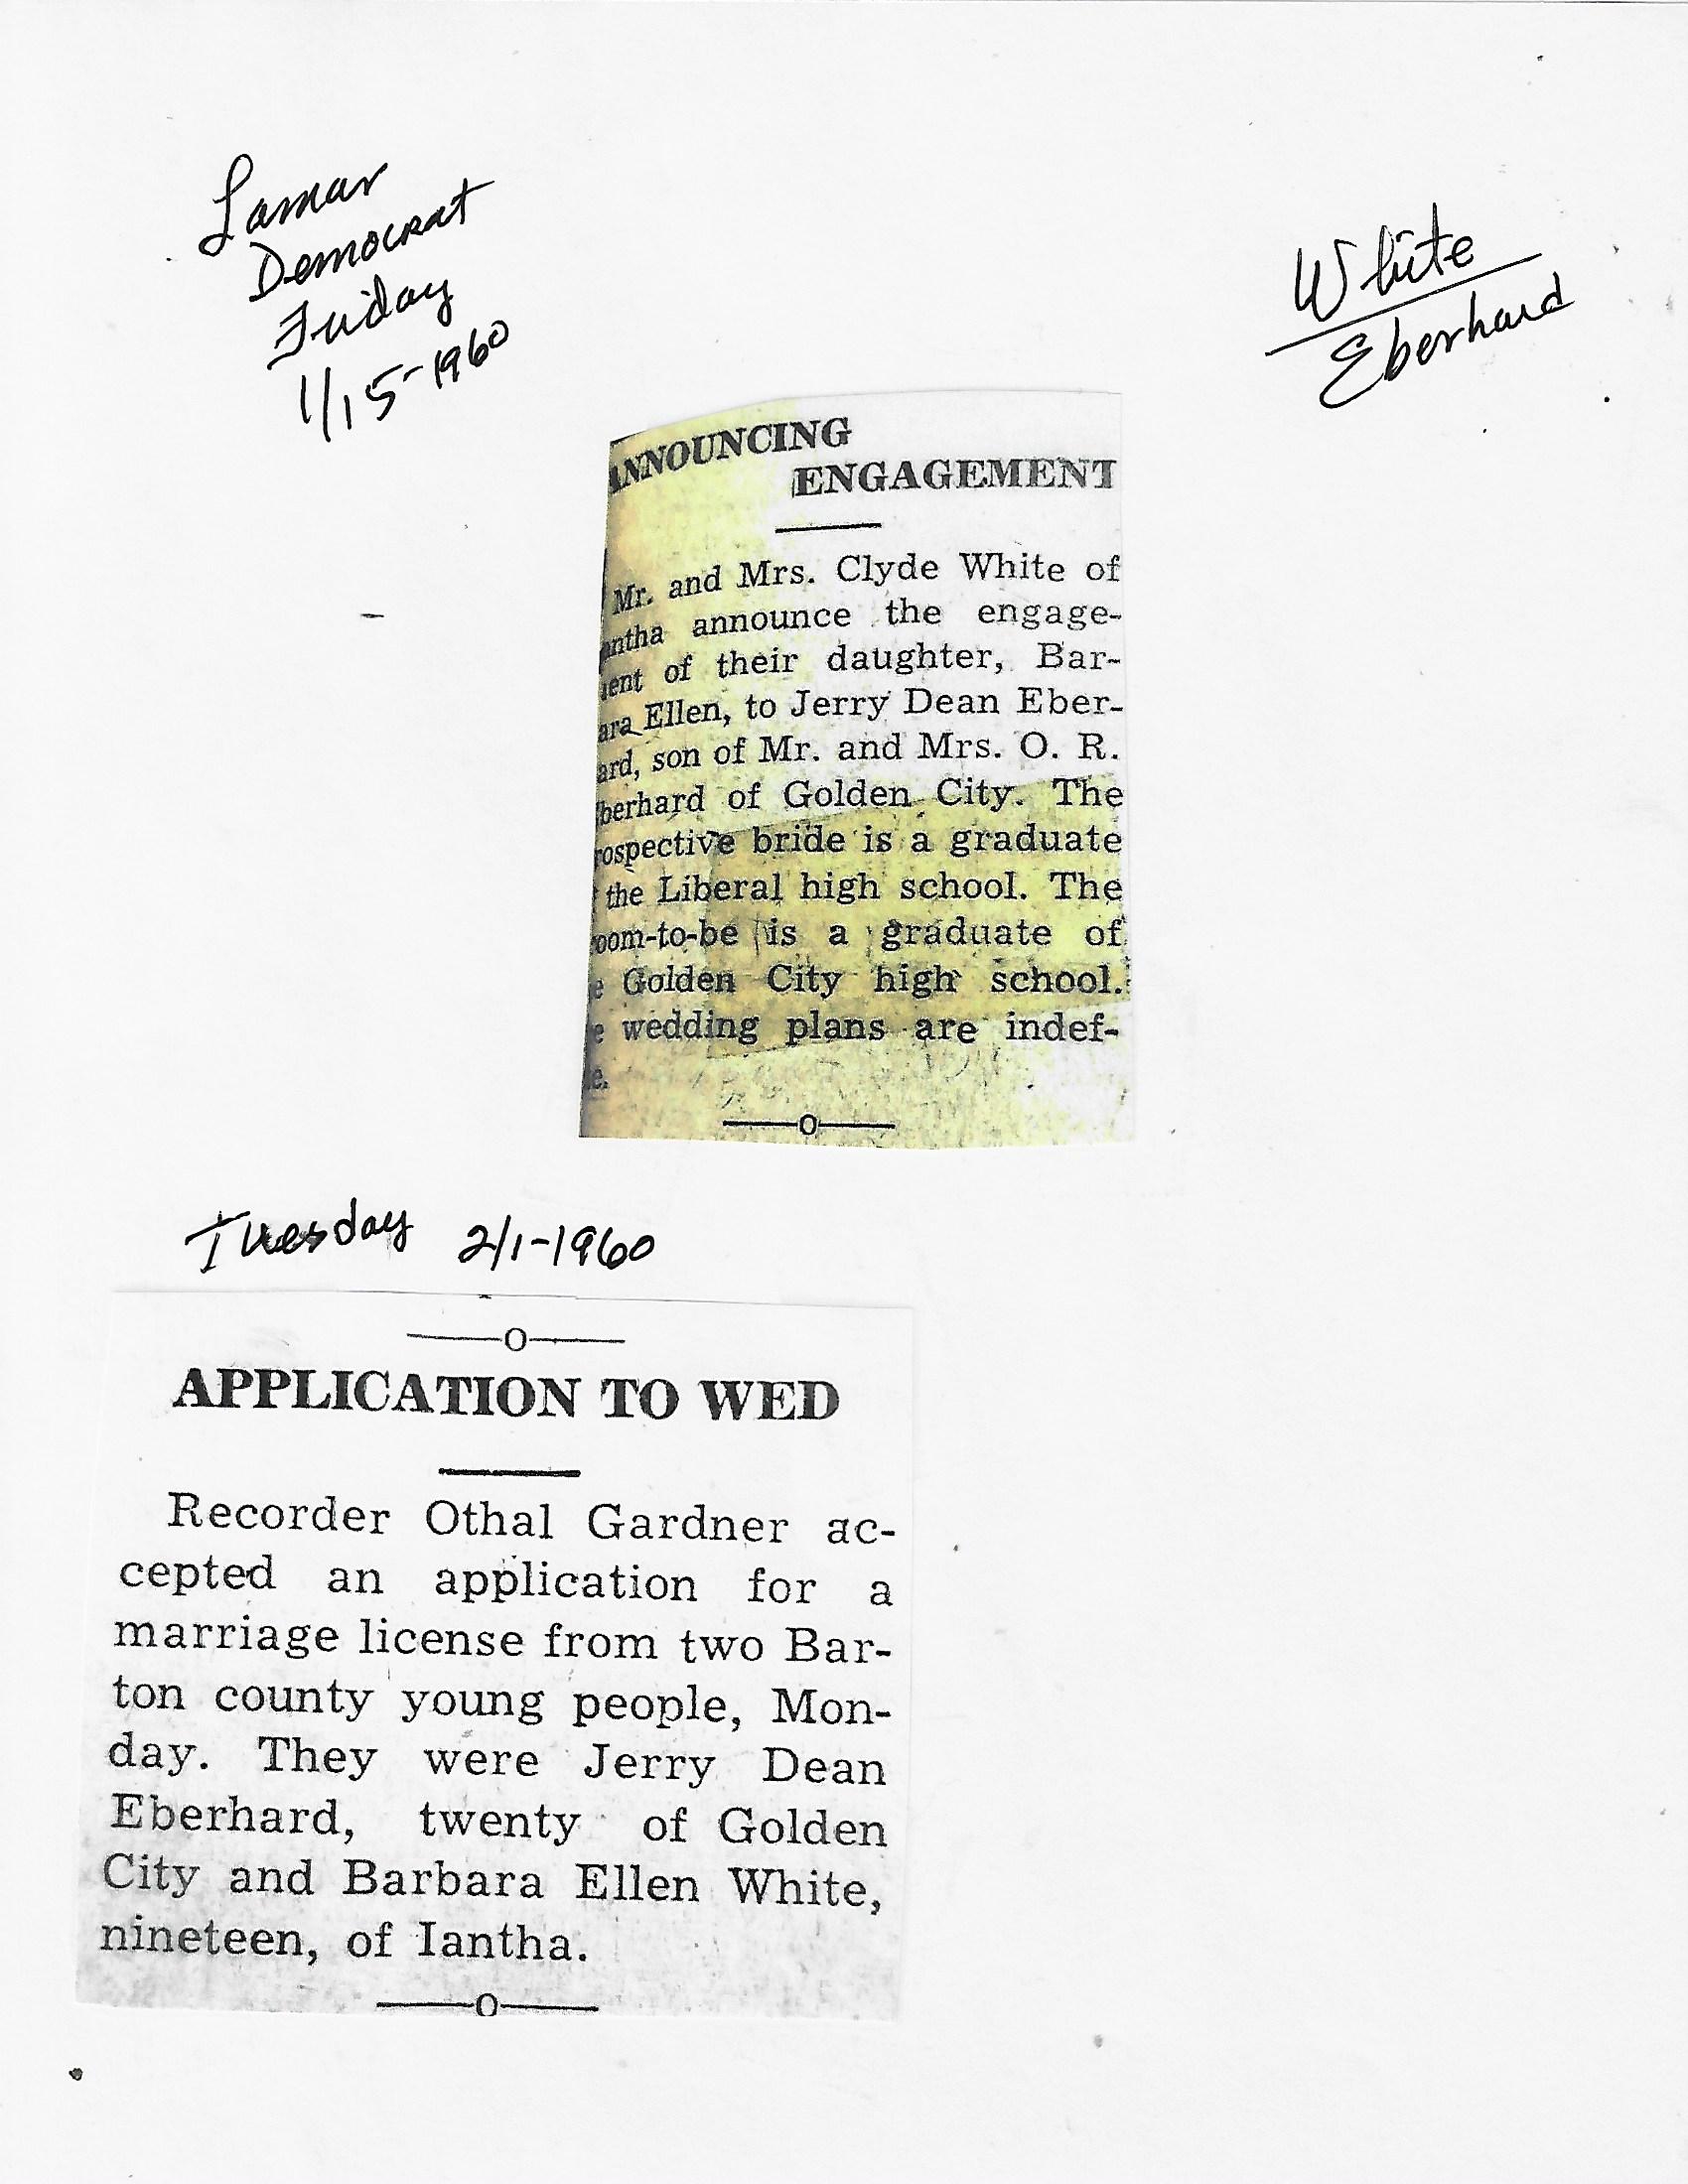 Lamar
Democrat
Friday
1/15-1960
White
Eberhard
ANNOUNCING
ENGAGEMENT
Mr. and Mrs. Clyde White of
antha announce the engage-
ent of their daughter, Bar-
ara Ellen, to Jerry Dean Eber-
ard, son of Mr. and Mrs. O. R.
berhard of Golden City. The
rospective bride is a graduate
the Liberal high school. The
oom-to-be is a graduate of
e Golden City high school.
e wedding plans are indef-
e.
Tuesday 2/1-1960
APPLICATION TO WED
Recorder Othal Gardner ac-
cepted an application for a
marriage license from two Bar-
ton county young people, Mon-
day. They were Jerry Dean
Eberhard, twenty of Golden
City and Barbara Ellen White,
nineteen, of Iantha.